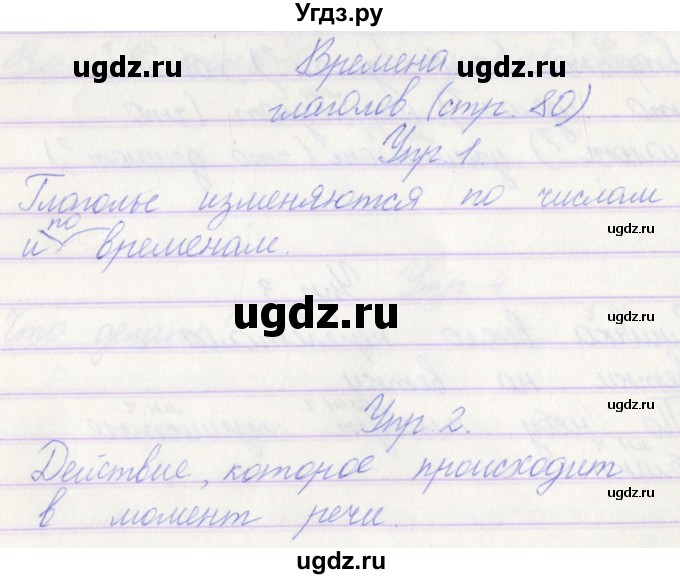 Угдз.ру
Времена
глаголов. (стр. 80)
Упр. 1
Глаголы изменяются по числам
и по временам.
Упр. 2.
Действие, которое происходит
в момент речи.
ugdz.ru
ugdz.ru
ugdz.ru
ugdz.ru
ugdz.ru
ugdz.ru
ugdz.ru
ugdz.ru